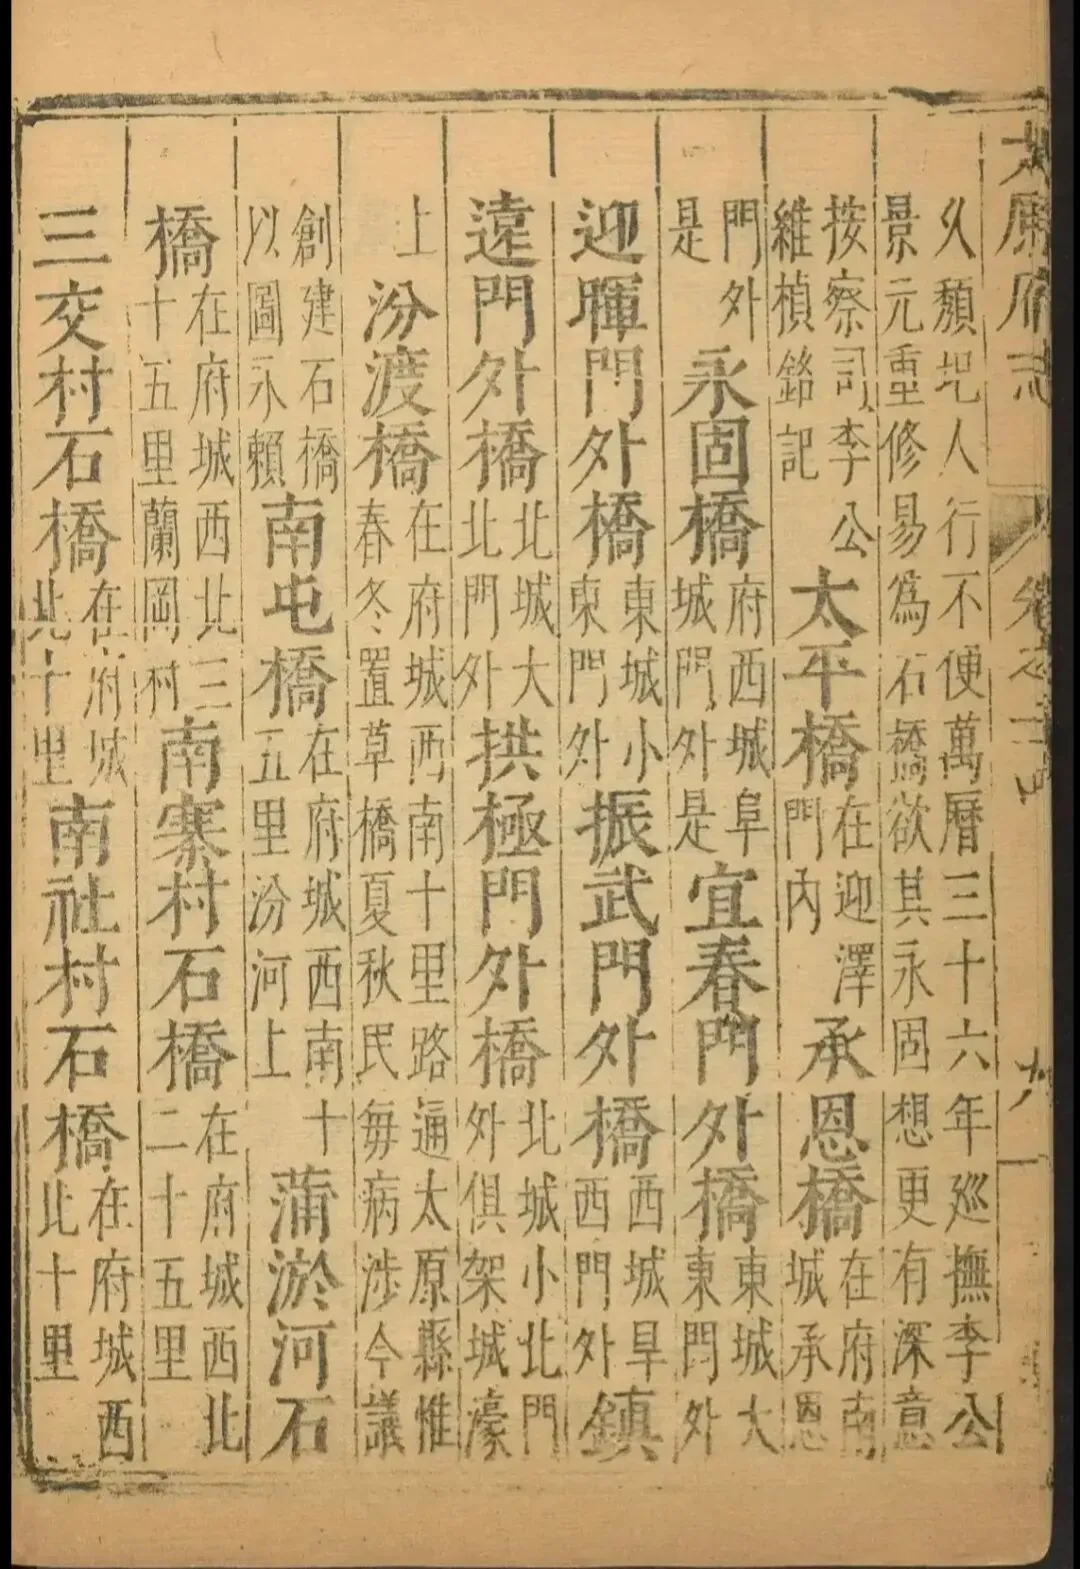 太原府志 卷之 九
久頽圯人行不便萬曆三十六年廵撫李公
景元重修易為石橋欲其永固想更有深意
按察司李公維楨銘記太平橋在迎澤門內承恩橋在府南城承恩
門外是永固橋府西城阜城門外是宜春門外橋東城大東門外
迎暉門外橋東城小東門外振武門外橋西城旱西門外鎮
遠門外橋北城大北門外拱極門外橋北城小北門外俱架城濠
上汾渡橋在府城西南十里路通太原縣惟春冬置草橋夏秋民每病涉今議
創建石橋以圖永賴南屯橋在府城西南十五里汾河上蒲淤河石
橋在府城西北三十五里蘭岡村南寨村石橋在府城西北二十五里
三交村石橋在府城北十里南社村石橋在府城西北十里